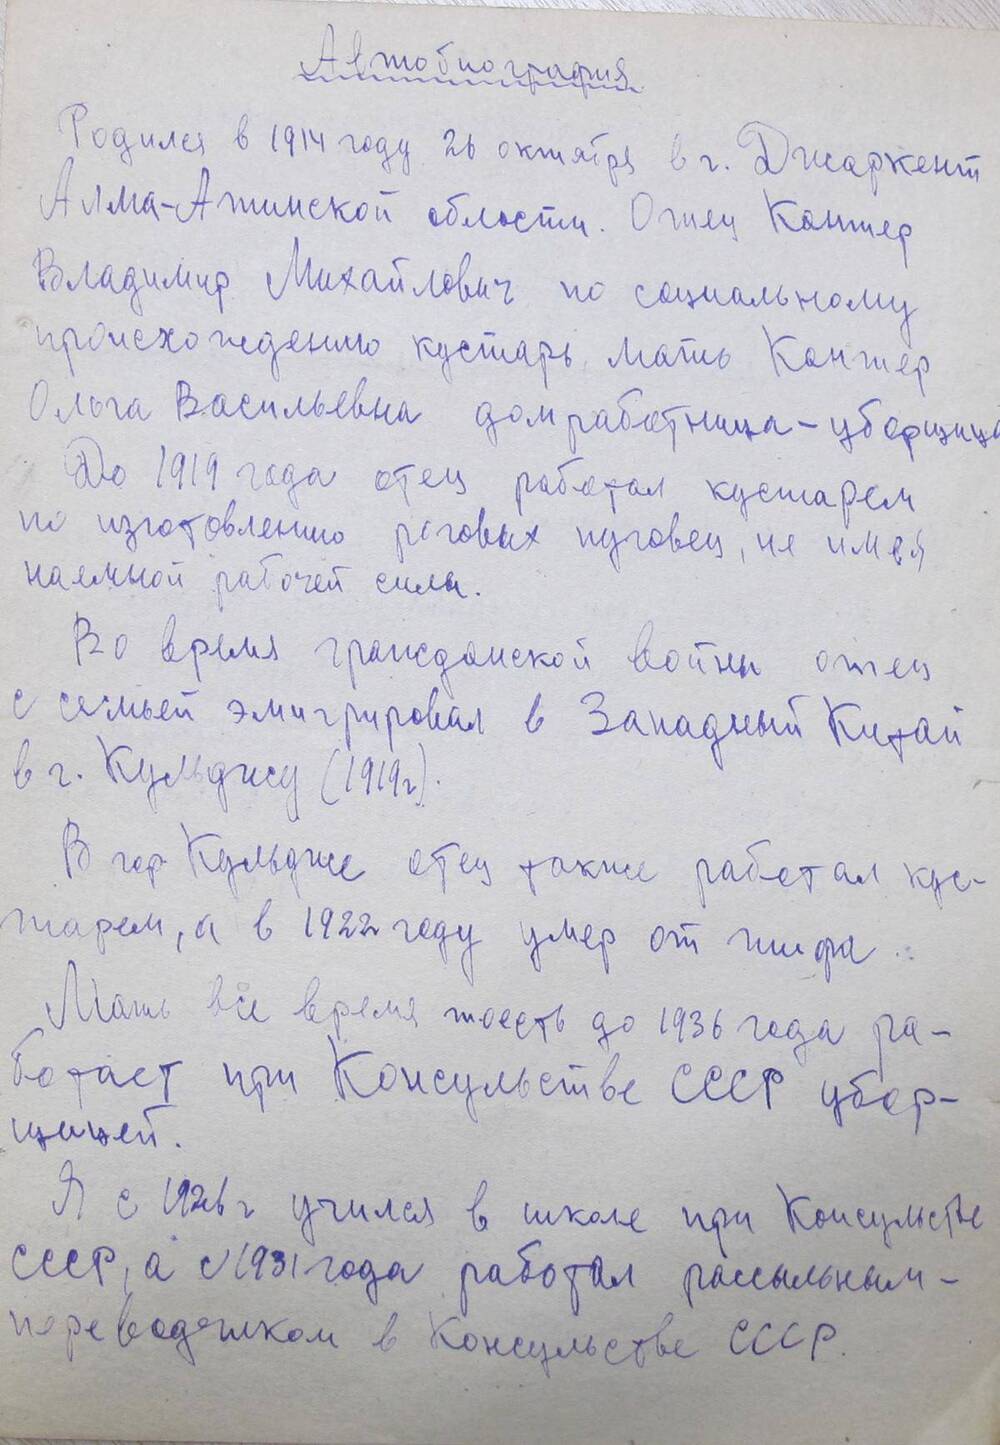 Автобиография
Родился в 1914 году 26 октября в г. Джаркент
Алма-Атинской области. Отец Кантер
Владимир Михайлович по социальному
происхождению кустарь, мать Кантер
Ольга Васильевна домработница-уборщица
До 1919 года отец работал кустарем
по изготовлению роговых пуговец, не имея
наемной рабочей силы.
Во время гражданской войны отец
с семьей эмигрировал в Западный Китай
в г. Кульджу (1919г).
В гор Кульдже отец также работал кус-
тарем, а в 1922 году умер от тифа.
Мать все время тоесть до 1936 года ра-
ботает при Консульстве СССР убор-
щицей.
Я с 1926 г учился в школе при Консульстве
СССР, а с 1931 года работал рассыльным-
переводчиком в Консульстве СССР.